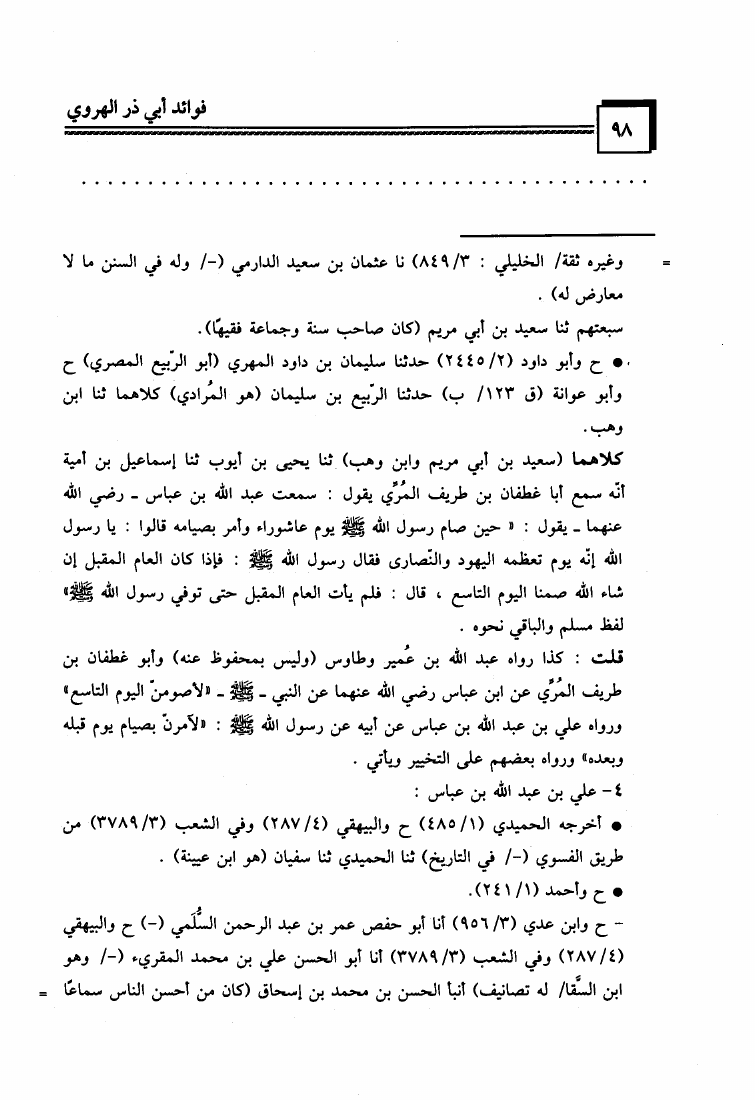 فوائد أبي ذر الهروي
٩٨
. . . . . . . . . . . . . . . . . . . . . . . . . . . . . . . . . . . . . . . . . . .
= وغيره ثقة/ الخليلي : ٨٤٩/٣) نا عثمان بن سعيد الدارمي (-/ وله في السنن ما لا
معارض له) .
سبعتهم ثنا سعيد بن أبي مريم (كان صاحب سنة وجماعة فقيهًا).
● ح وأبو داود (٢٤٤٥/٢) حدثنا سليمان بن داود المهري (أبو الرّبيع المصري) ح
وأبو عوانة (ق ١٢٣/ ب) حدثنا الرّبيع بن سليمان (هو المُرادي) كلاهما ثنا ابن
وهب.
كلاهما (سعيد بن أبي مريم وابن وهب) ثنا يحيى بن أيوب ثنا إسماعيل بن أمية
أنّه سمع أبا غطفان بن طريف المُرِّي يقول : سمعت عبد الله بن عباس ـ رضي الله
عنهما ـ يقول : « حين صام رسول الله ﷺ يوم عاشوراء وأمر بصيامه قالوا : يا رسول
الله إنّه يوم تعظمه اليهود والنّصارى فقال رسول الله ﷺ : فإذا كان العام المقبل إن
شاء الله صمنا اليوم التاسع ، قال : فلم يأت العام المقبل حتى توفي رسول الله ﷺ»
لفظ مسلم والباقي نحوه .
قلت : كذا رواه عبد الله بن عُمير وطاوس (وليس بمحفوظ عنه) وأبو غطفان بن
طريف المُرِّي عن ابن عباس رضي الله عنهما عن النبي ـ ﷺ ـ «لأصومنّ اليوم التاسع»
ورواه علي بن عبد الله بن عباس عن أبيه عن رسول الله ﷺ : «لآمرنّ بصيام يوم قبله
وبعده» ورواه بعضهم على التخيير ويأتي .
٤- علي بن عبد الله بن عباس :
● أخرجه الحميدي (٤٨٥/١) ح والبيهقي (٢٨٧/٤) وفي الشعب (٣٧٨٩/٣) من
طريق الفسوي (-/ في التاريخ) ثنا الحميدي ثنا سفيان (هو ابن عيينة) .
● ح وأحمد (٢٤١/١).
- ح وابن عدي (٩٥٦/٣) أنا أبو حفص عمر بن عبد الرحمن السُّلَمي (-) ح والبيهقي
(٢٨٧/٤) وفي الشعب (٣٧٨٩/٣) أنا أبو الحسن علي بن محمد المقريء (-/ وهو
ابن السَّقا/ له تصانيف) أنبأ الحسن بن محمد بن إسحاق (كان من أحسن الناس سماعًا =